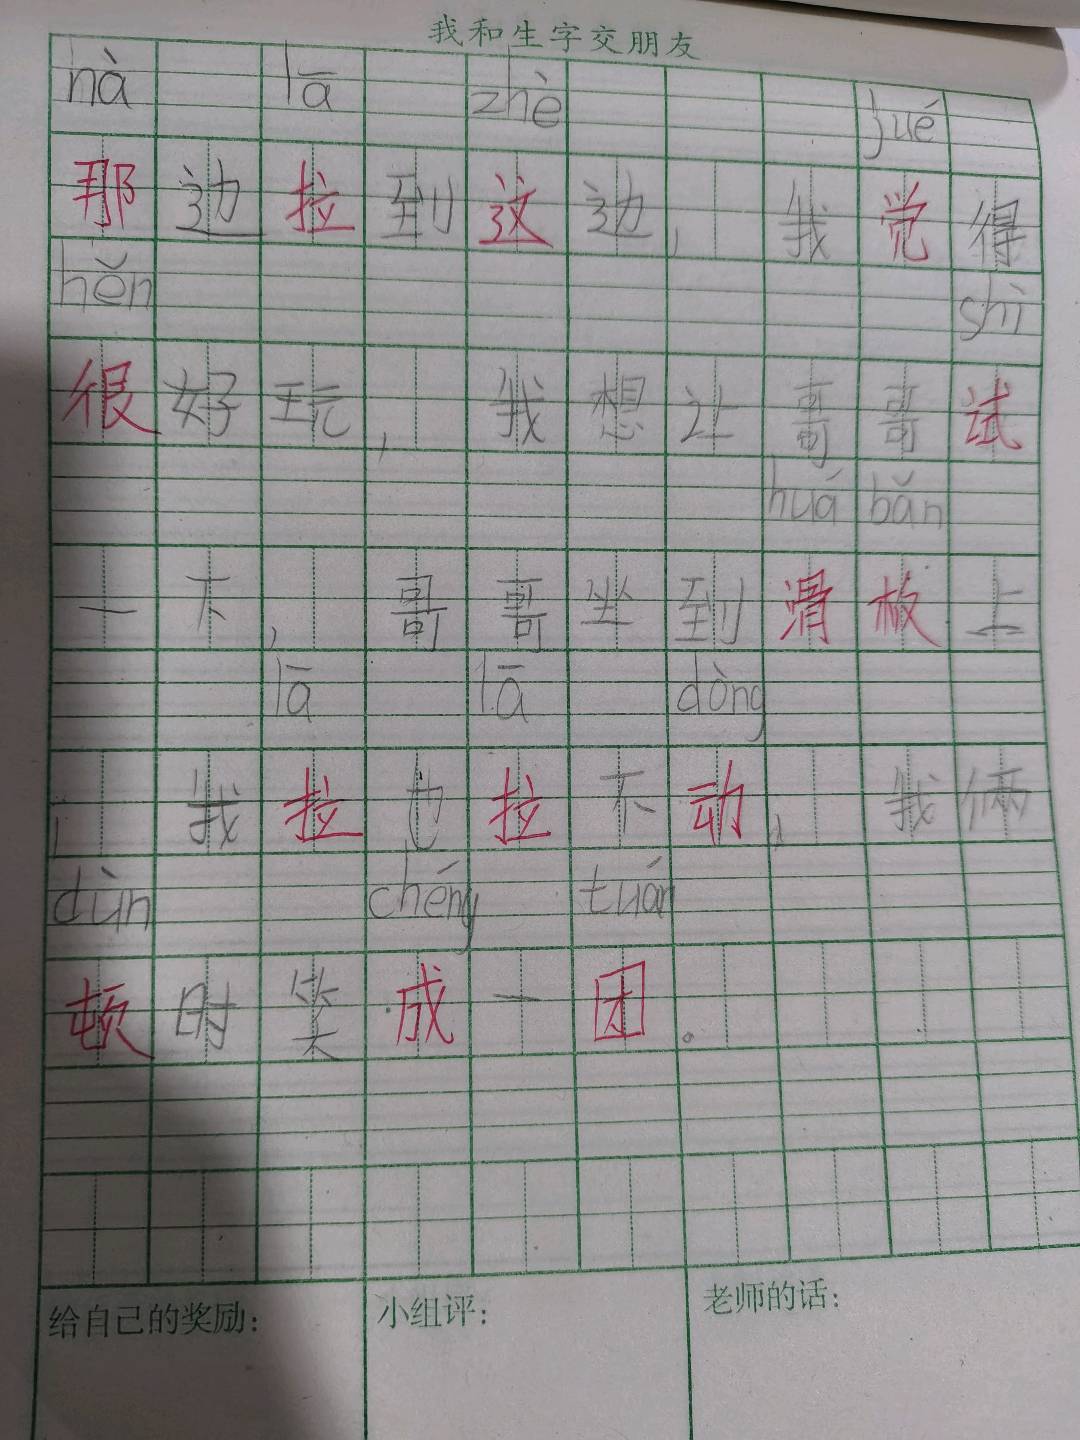 我和生字交朋友
nà lā zhè jué
那边拉到这边，我觉得
hěn shì
很好玩，我想让哥哥试
huá bǎn
一下，哥哥坐到滑板上
lā lā dòng
，我拉也拉不动，我俩
dùn chéng tuán
顿时笑成一团。
给自己的奖励：
小组评：
老师的话：